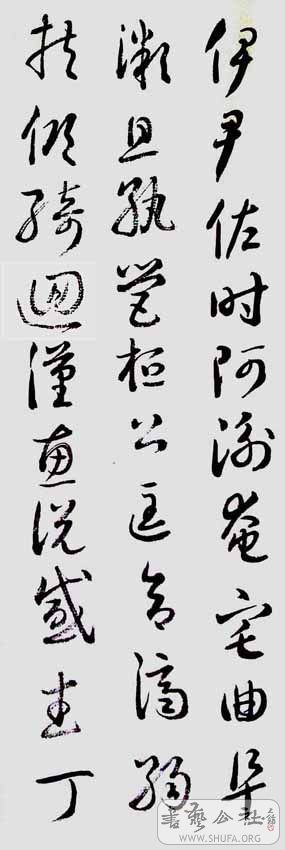 伊尹佐时阿衡奄宅曲阜
微旦孰營桓公匡合濟弱
扶傾綺迴漢惠說感武丁
書藝公社
WWW.SHUFA.ORG